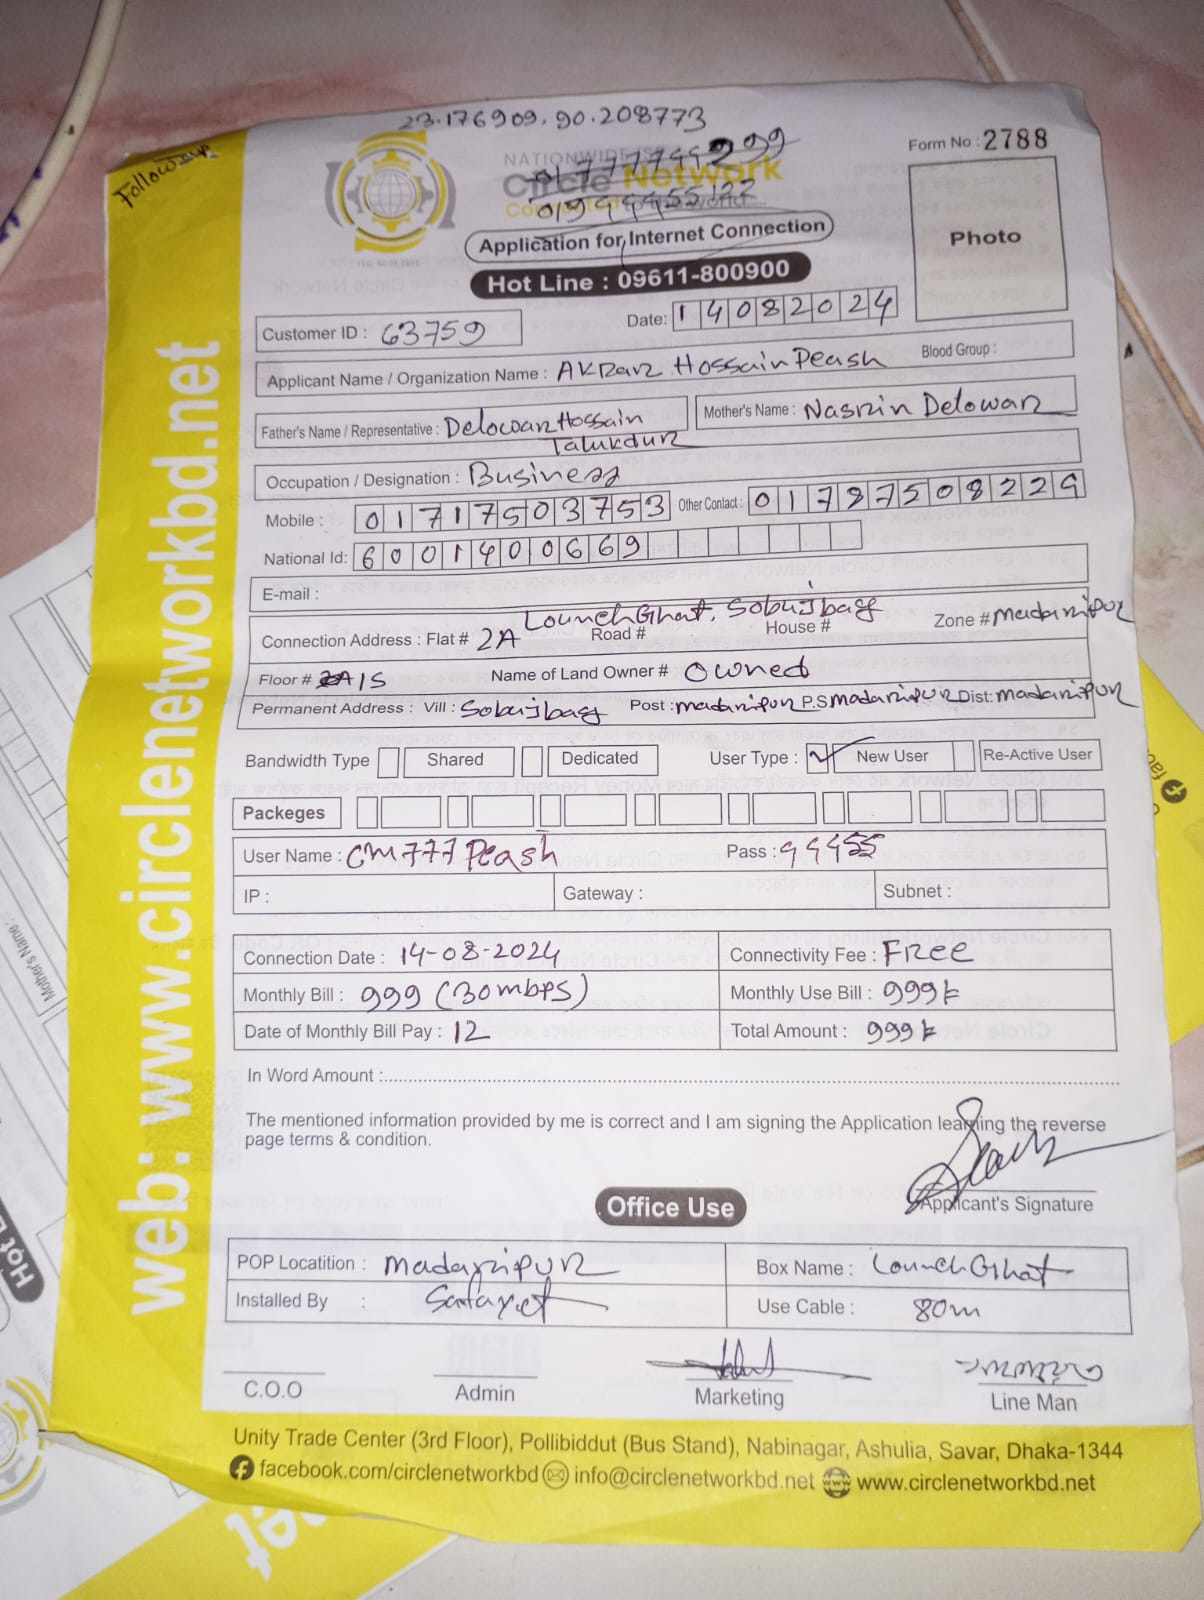 23.176909, 90.208773
Followup
NATIONWIDE ISP
Circle Network
01777799299
0199955122
Form No : 2788
Photo
Application for Internet Connection
Hot Line : 09611-800900
Customer ID : 63759
Date: 14082024
Applicant Name / Organization Name : AKRAR Hossain Peash
Blood Group :
Father's Name / Representative : Delowar Hossain
Talukdur
Mother's Name : Nasrin Delowar
Occupation / Designation : Business
Mobile : 01717503753 Other Contact : 01787508229
National Id: 6001400669
E-mail :
Lounch Ghat, Sobujbag
Connection Address : Flat # 2A Road # House # Zone # madaripur
Floor # 1S Name of Land Owner # Owned
Permanent Address : Vill : Sobujbag Post : madaripur P.S madaripur Dist: madaripur
Bandwidth Type Shared Dedicated User Type : ✓ New User Re-Active User
Packeges
User Name : CM777Peash Pass : 99955
IP : Gateway : Subnet :
Connection Date : 14-08-2024 Connectivity Fee : FREE
Monthly Bill : 999 (30mbps) Monthly Use Bill : 999৳
Date of Monthly Bill Pay : 12 Total Amount : 999৳
In Word Amount :
The mentioned information provided by me is correct and I am signing the Application learning the reverse
page terms & condition.
Applicant's Signature
Office Use
POP Locatition : Madaripur Box Name : Lounch Ghat
Installed By : Safayet Use Cable : 80m
C.O.O Admin Marketing Line Man
Unity Trade Center (3rd Floor), Pollibiddut (Bus Stand), Nabinagar, Ashulia, Savar, Dhaka-1344
facebook.com/circlenetworkbd info@circlenetworkbd.net www.circlenetworkbd.net
web: www.circlenetworkbd.net
Mother's Name :